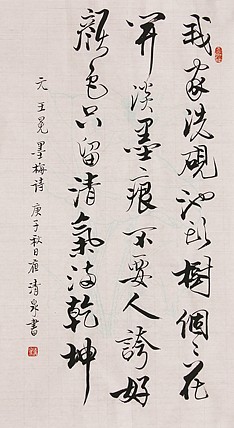 我家洗硯池頭樹個々花
開淡墨痕不要人誇好
顏色只留清氣滿乾坤
元王冕墨梅詩 庚子秋日 清泉書